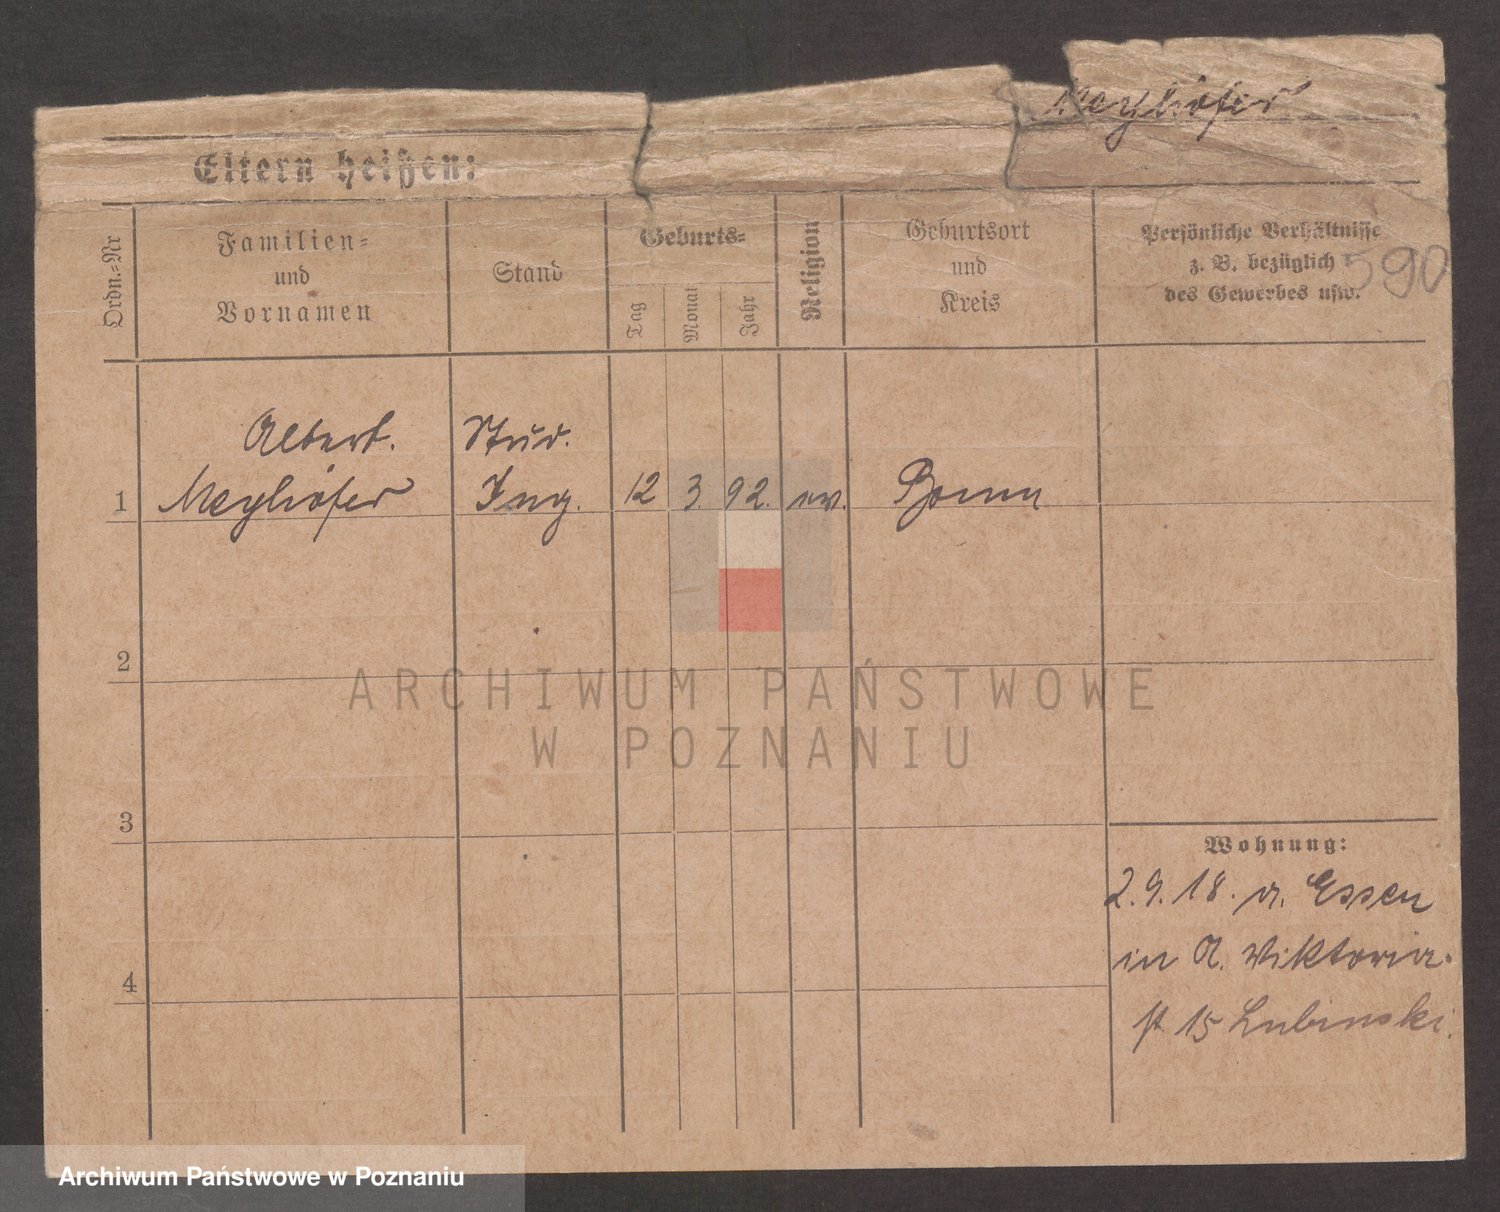 Meyhöfer
Eltern heißen:
Ordn.-Nr
Familien-
und
Vornamen
Stand
Geburts-
Tag
Monat
Jahr
Religion
Geburtsort
und
Kreis
Persönliche Verhältnisse
z. B. bezüglich
des Gewerbes usw.
590
Albert. Stud.
1 Meyhöfer Ing. 12 3. 92. ev. Bonn
2
ARCHIWUM PAŃSTWOWE
W POZNANIU
3
Wohnung:
2.9.18. a. Essen
in A. Viktoria-
st 15 Lubinski.
4
Archiwum Państwowe w Poznaniu